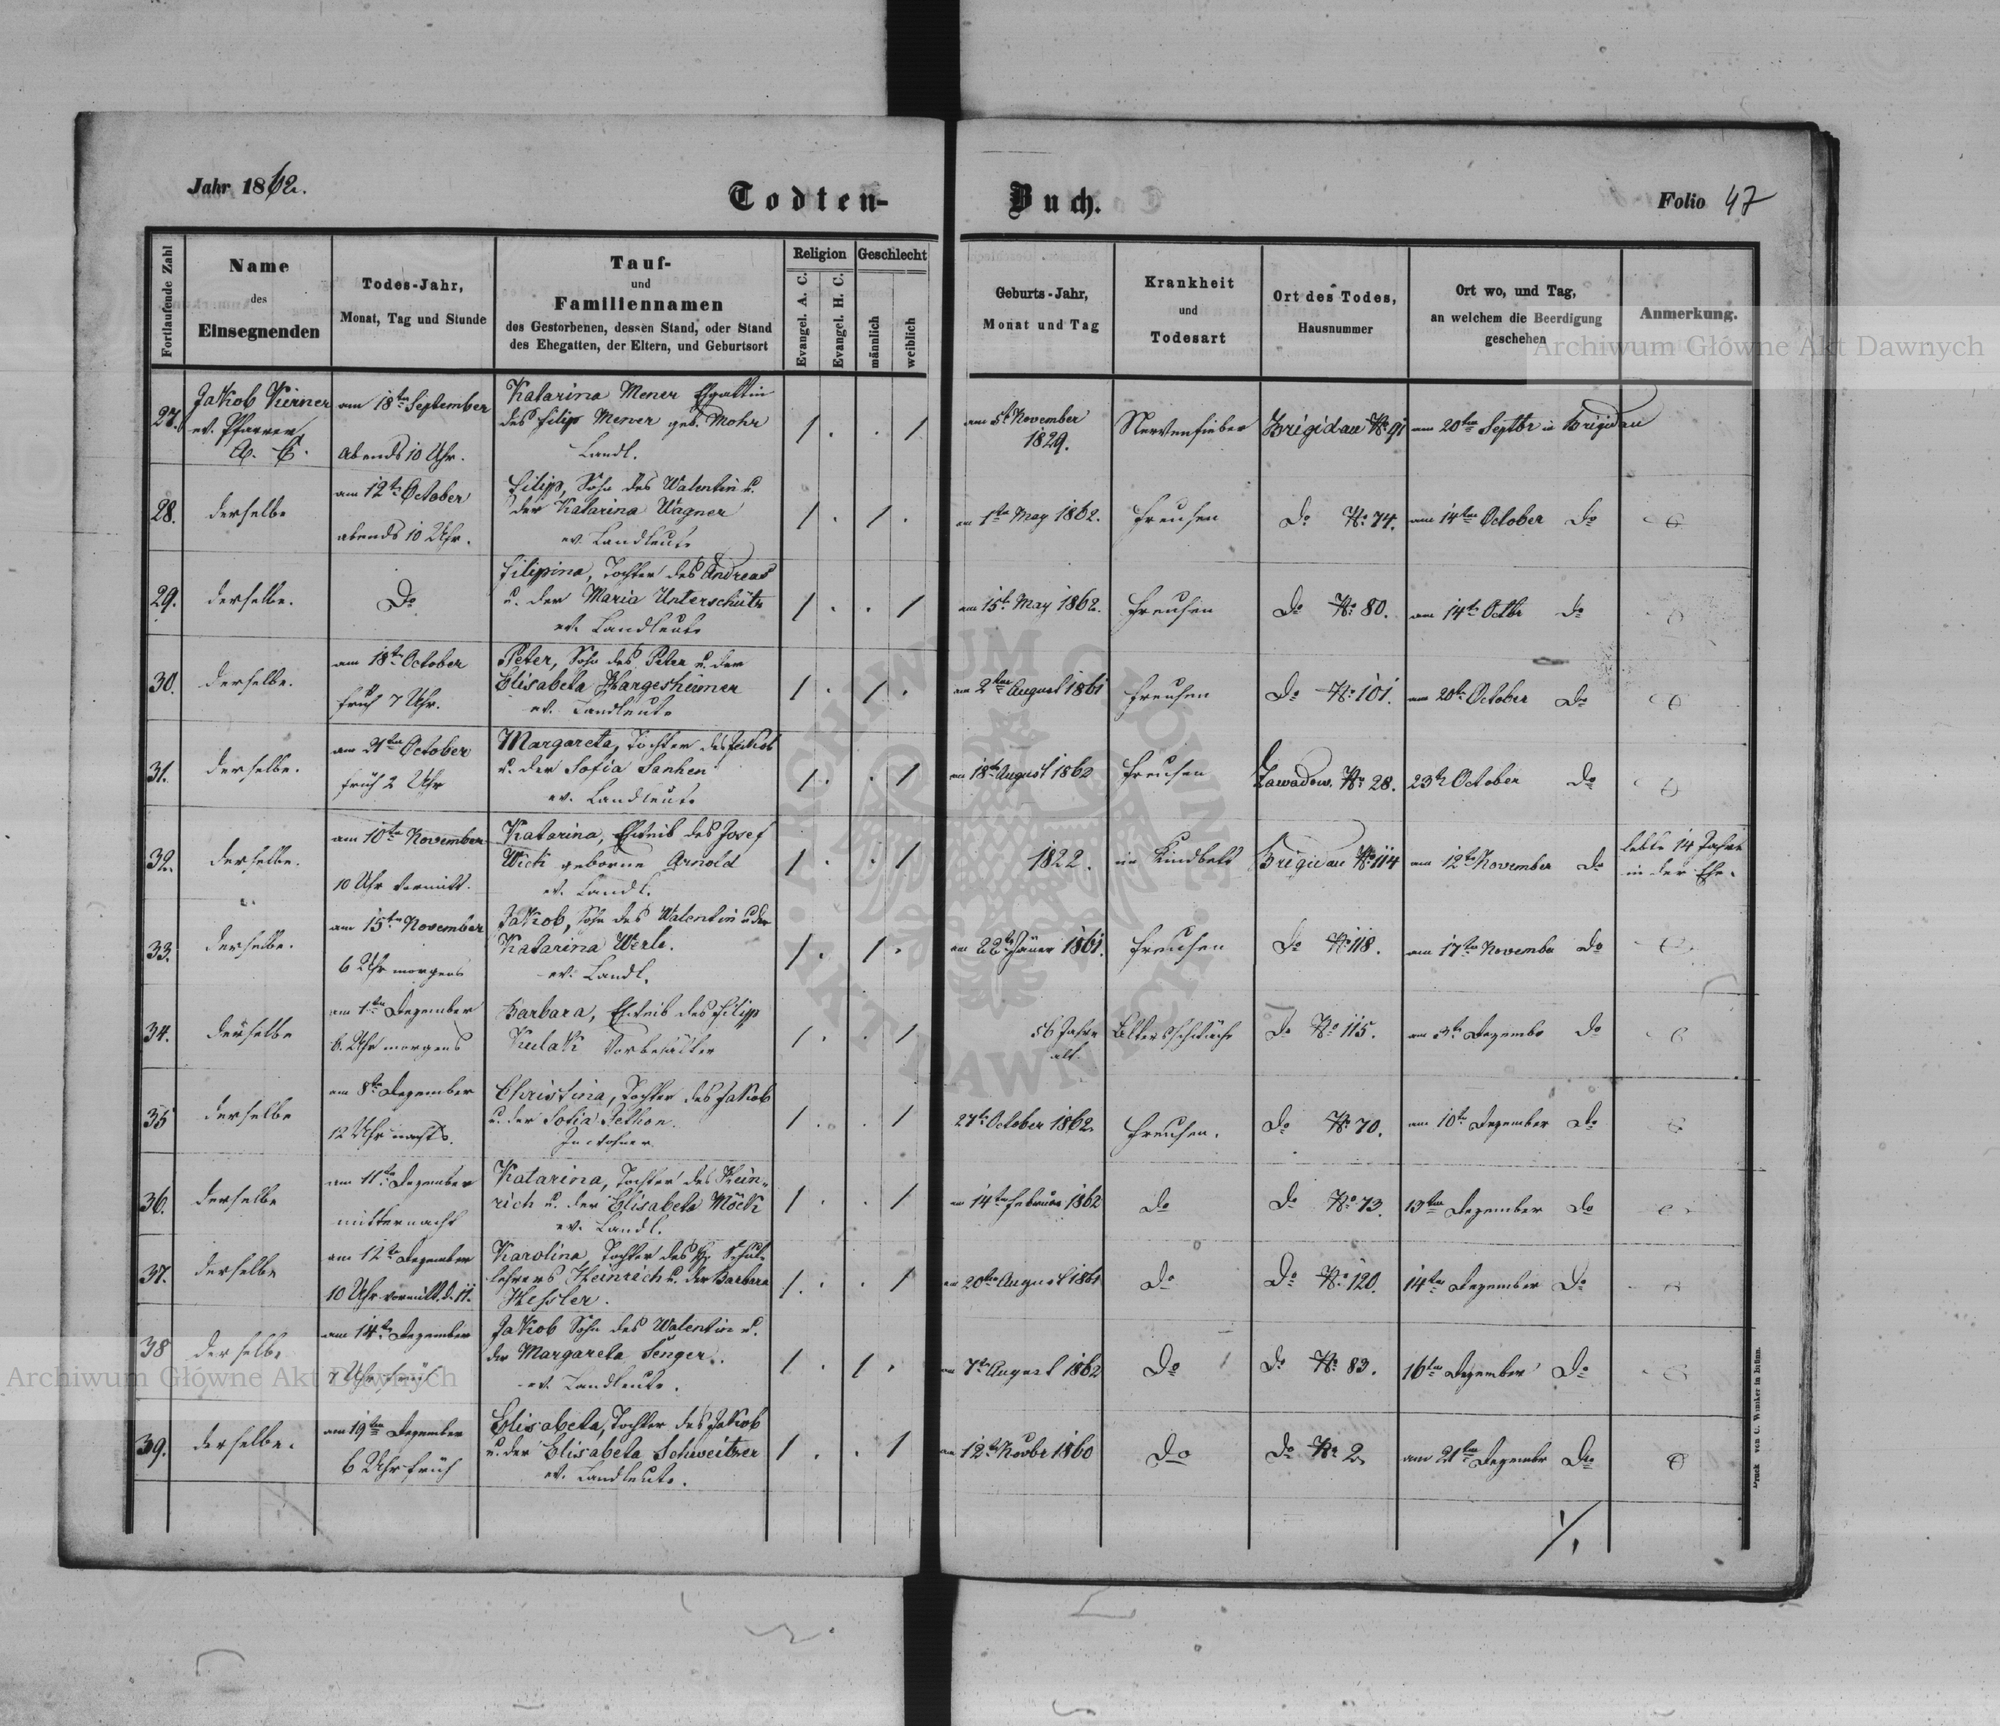 Jahr 1862.
Todten-
Buch.
Folio 47
Fortlaufende Zahl
Name
des
Einsegnenden
Todes-Jahr,
Monat, Tag und Stunde
Tauf-
und
Familiennamen
des Gestorbenen, dessen Stand, oder Stand
des Ehegatten, der Eltern, und Geburtsort
Religion
Evangel. A. C.
Evangel. H. C.
Geschlecht
männlich
weiblich
Geburts-Jahr,
Monat und Tag
Krankheit
und
Todesart
Ort des Todes,
Hausnummer
Ort wo, und Tag,
an welchem die Beerdigung
geschehen
Anmerkung.
27.
Jakob Kierner
ev. Pfarrer
A. C.
am 18ten September
Abends 10 Uhr.
Katarina Mener Ehgattin
des Filip Mener geb. Mohr
Landl.
/ . . /
am 5t November
1829.
Nervenfieber
Brigidau No 91
am 20ten Septbr in Brigidau
28.
derselbe
am 12t October
abends 10 Uhr.
Filipp, Sohn des Walentin u.
der Katarina Wagner
ev. Landleute
/ . / .
am 1ten May 1862.
Freusen
Do No 74.
am 14ten October Do
29.
derselbe.
Do
Filipina, Tochter des Andreas
u. der Maria Unterschütz
ev. Landleute
/ . . /
am 15t May 1862.
Freusen
Do No 80.
am 14t Octbr do
30.
derselbe.
am 18ten October
früh 7 Uhr.
Peter, Sohn des Peter u. der
Elisabeta Hargesheimer
ev. Landleute
/ . / .
am 2ten August 1861
Freusen
Do No 101.
am 20t October Do
31.
derselbe.
am 21ten October
früh 2 Uhr
Margareta, Tochter des Jakob
u. der Sofia Sanhen
ev. Landleute
/ . . /
am 18t August 1862
Freusen
Zawadow. No 28.
23t October Do
32.
derselbe.
am 10ten November
10 Uhr vormitt.
Katarina, Eheweib des Josef
Wick geborne Arnold
ev. Landl.
/ . . /
1822.
im Kindbett
Brigidau No 114
am 12t November Do
lebte 14 Jahre
in der Ehe.
33.
derselbe.
am 15ten November
6 Uhr morgens
Jakob, Sohn des Walentin u der
Katarina Werle.
ev. Landl.
/ . / .
am 22t Jäner 1861.
Freusen
Do No 118.
am 17ten November Do
34.
derselbe
am 1ten Dezember
6. Uhr morgens
Barbara, Eheweib des Filipp
Kulak
/ . . /
56 Jahre
alt.
Altersschwäche
Do No 115.
am 3t Dezembe Do
35
derselbe
am 8ten Dezember
12 Uhr nachts.
Christina, Tochter des Jakob
u. der Sofia Pethon.
Inwohner
/ . . /
27t October 1862.
Freusen.
Do No 70.
am 10t Dezember Do
36.
derselbe
am 11ten Dezember
mitternacht
Katarina, Tochter des Hein-
rich u. der Elisabeta Möck
ev. Landl.
/ . . /
am 14ten Februar 1862
Do
Do No 73.
13ten Dezember Do
37.
derselbe
am 12t Dezember
10 Uhr vormitt.
Karolina, Tochter des Schul-
lehrers Heinrich u. der Barbara
Hessler.
/ . . /
am 20ten August 1861
Do
Do No 120.
14ten Dezember Do
38
derselbe
am 14t Dezember
7 Uhr früh
Jakob Sohn des Walentin u.
der Margareta Senger.
ev. Landleute.
/ . / .
am 7t August 1862
Do
Do No 83.
16ten Dezember Do
39.
derselbe.
am 19ten Dezember
6 Uhr früh
Elisabeta, Tochter des Jakob
u. der Elisabeta Schweitzer
ev. Landleute.
/ . . /
am 12t Novbr 1860
Do
Do No 2
am 21ten Dezember Do
Druck von C. Winiker in Brünn.
Archiwum Główne Akt Dawnych
Archiwum Główne Akt Dawnych
ARCHIWUM GŁÓWNE · AKT DAWNYCH ·